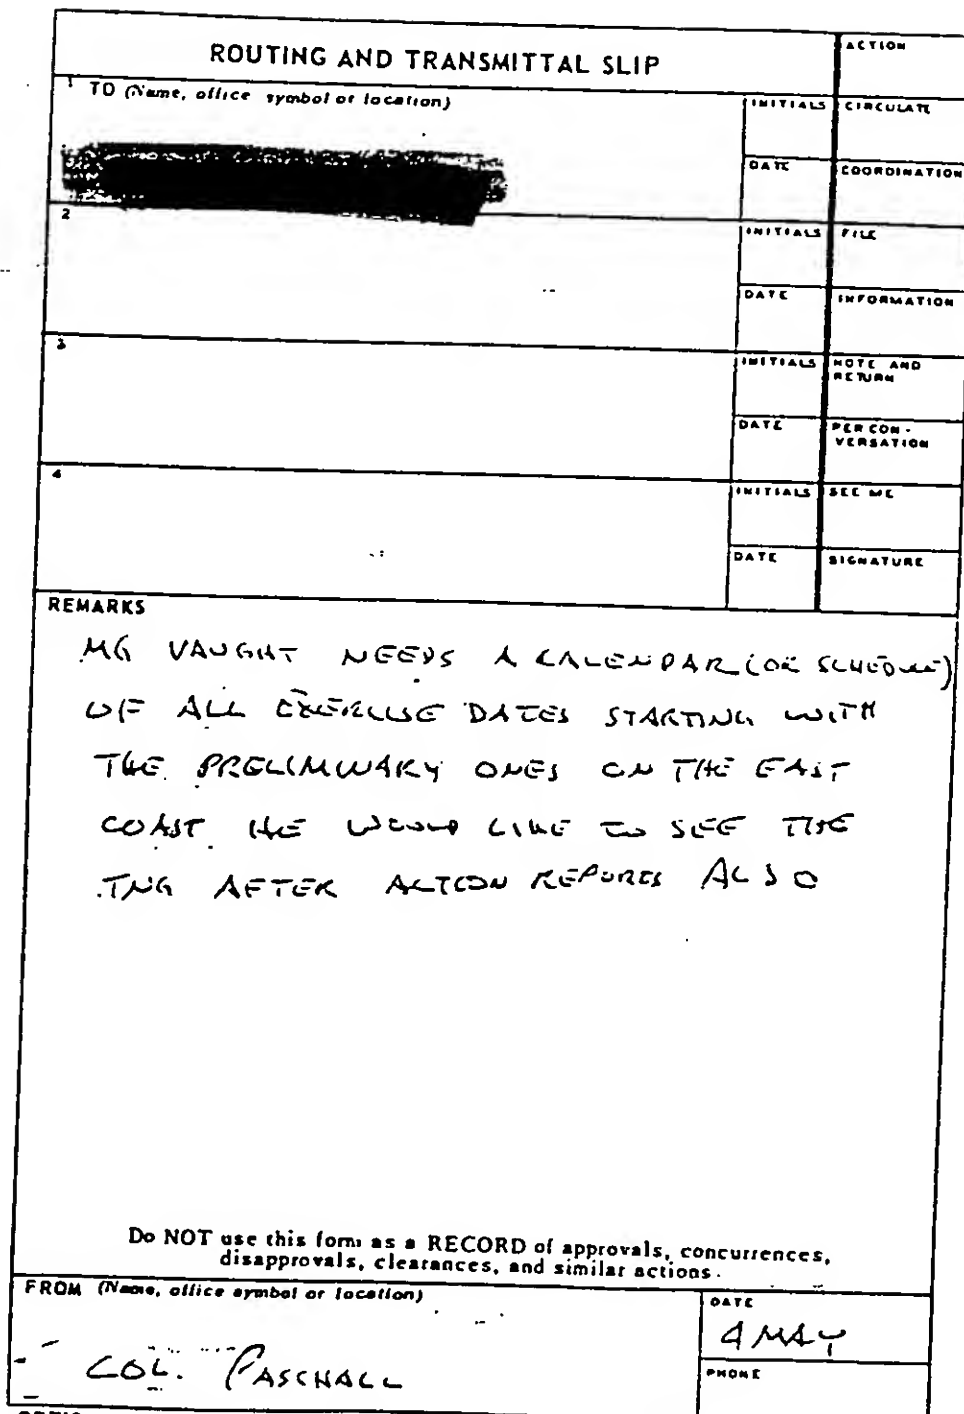 ROUTING AND TRANSMITTAL SLIP
ACTION
1 TO (Name, office symbol or location)
INITIALS
CIRCULATE
DATE
COORDINATION
2
INITIALS
FILE
DATE
INFORMATION
3
INITIALS
NOTE AND
RETURN
DATE
PER CON-
VERSATION
4
INITIALS
SEE ME
DATE
SIGNATURE
REMARKS
MG VAUGHT NEEDS A CALENDAR (OR SCHEDULE)
OF ALL EXERCISE DATES STARTING WITH
THE PRELIMINARY ONES ON THE EAST
COAST. HE WOULD LIKE TO SEE THE
TNG AFTER ACTION REPORTS ALSO
Do NOT use this form as a RECORD of approvals, concurrences,
disapprovals, clearances, and similar actions.
FROM (Name, office symbol or location)
DATE
4 MAY
COL. PASCHALL
PHONE